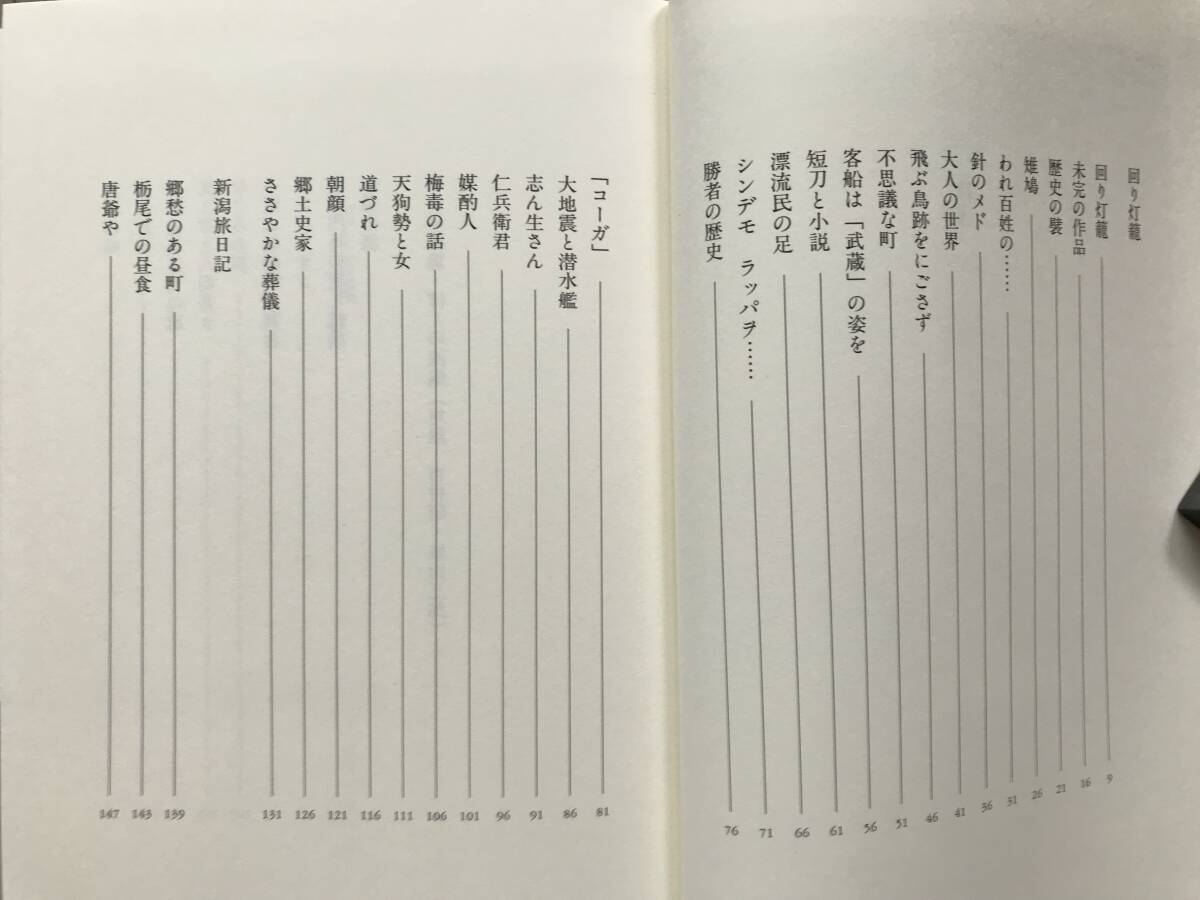 回り灯籠
回り灯籠 9
未完の作品 16
歴史の襞 21
雉鳩 26
われ百姓の…… 31
針のメド 36
大人の世界 41
飛ぶ鳥跡をにごさず 46
不思議な町 51
客船は「武蔵」の姿を 56
短刀と小説 61
漂流民の足 66
シンデモ ラッパヲ…… 71
勝者の歴史 76
「コーガ」 81
大地震と潜水艦 86
志ん生さん 91
仁兵衛君 96
媒酌人 101
梅毒の話 106
天狗勢と女 111
道づれ 116
朝顔 121
郷土史家 126
ささやかな葬儀 131
新潟旅日記
郷愁のある町 139
栃尾での昼食 143
唐爺や 147